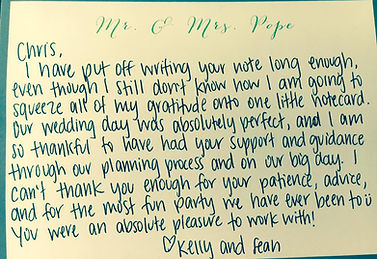 Mr. & Mrs. Pope
Chris,
I have put off writing your note long enough,
even though I still don't know how I am going to
squeeze all of my gratitude onto one little notecard.
Our wedding day was absolutely perfect, and I am
so thankful to have had your support and guidance
through our planning process and on our big day. I
can't thank you enough for your patience, advice,
and for the most fun party we have ever been to ü
You were an absolute pleasure to work with!
♡Kelly and Sean